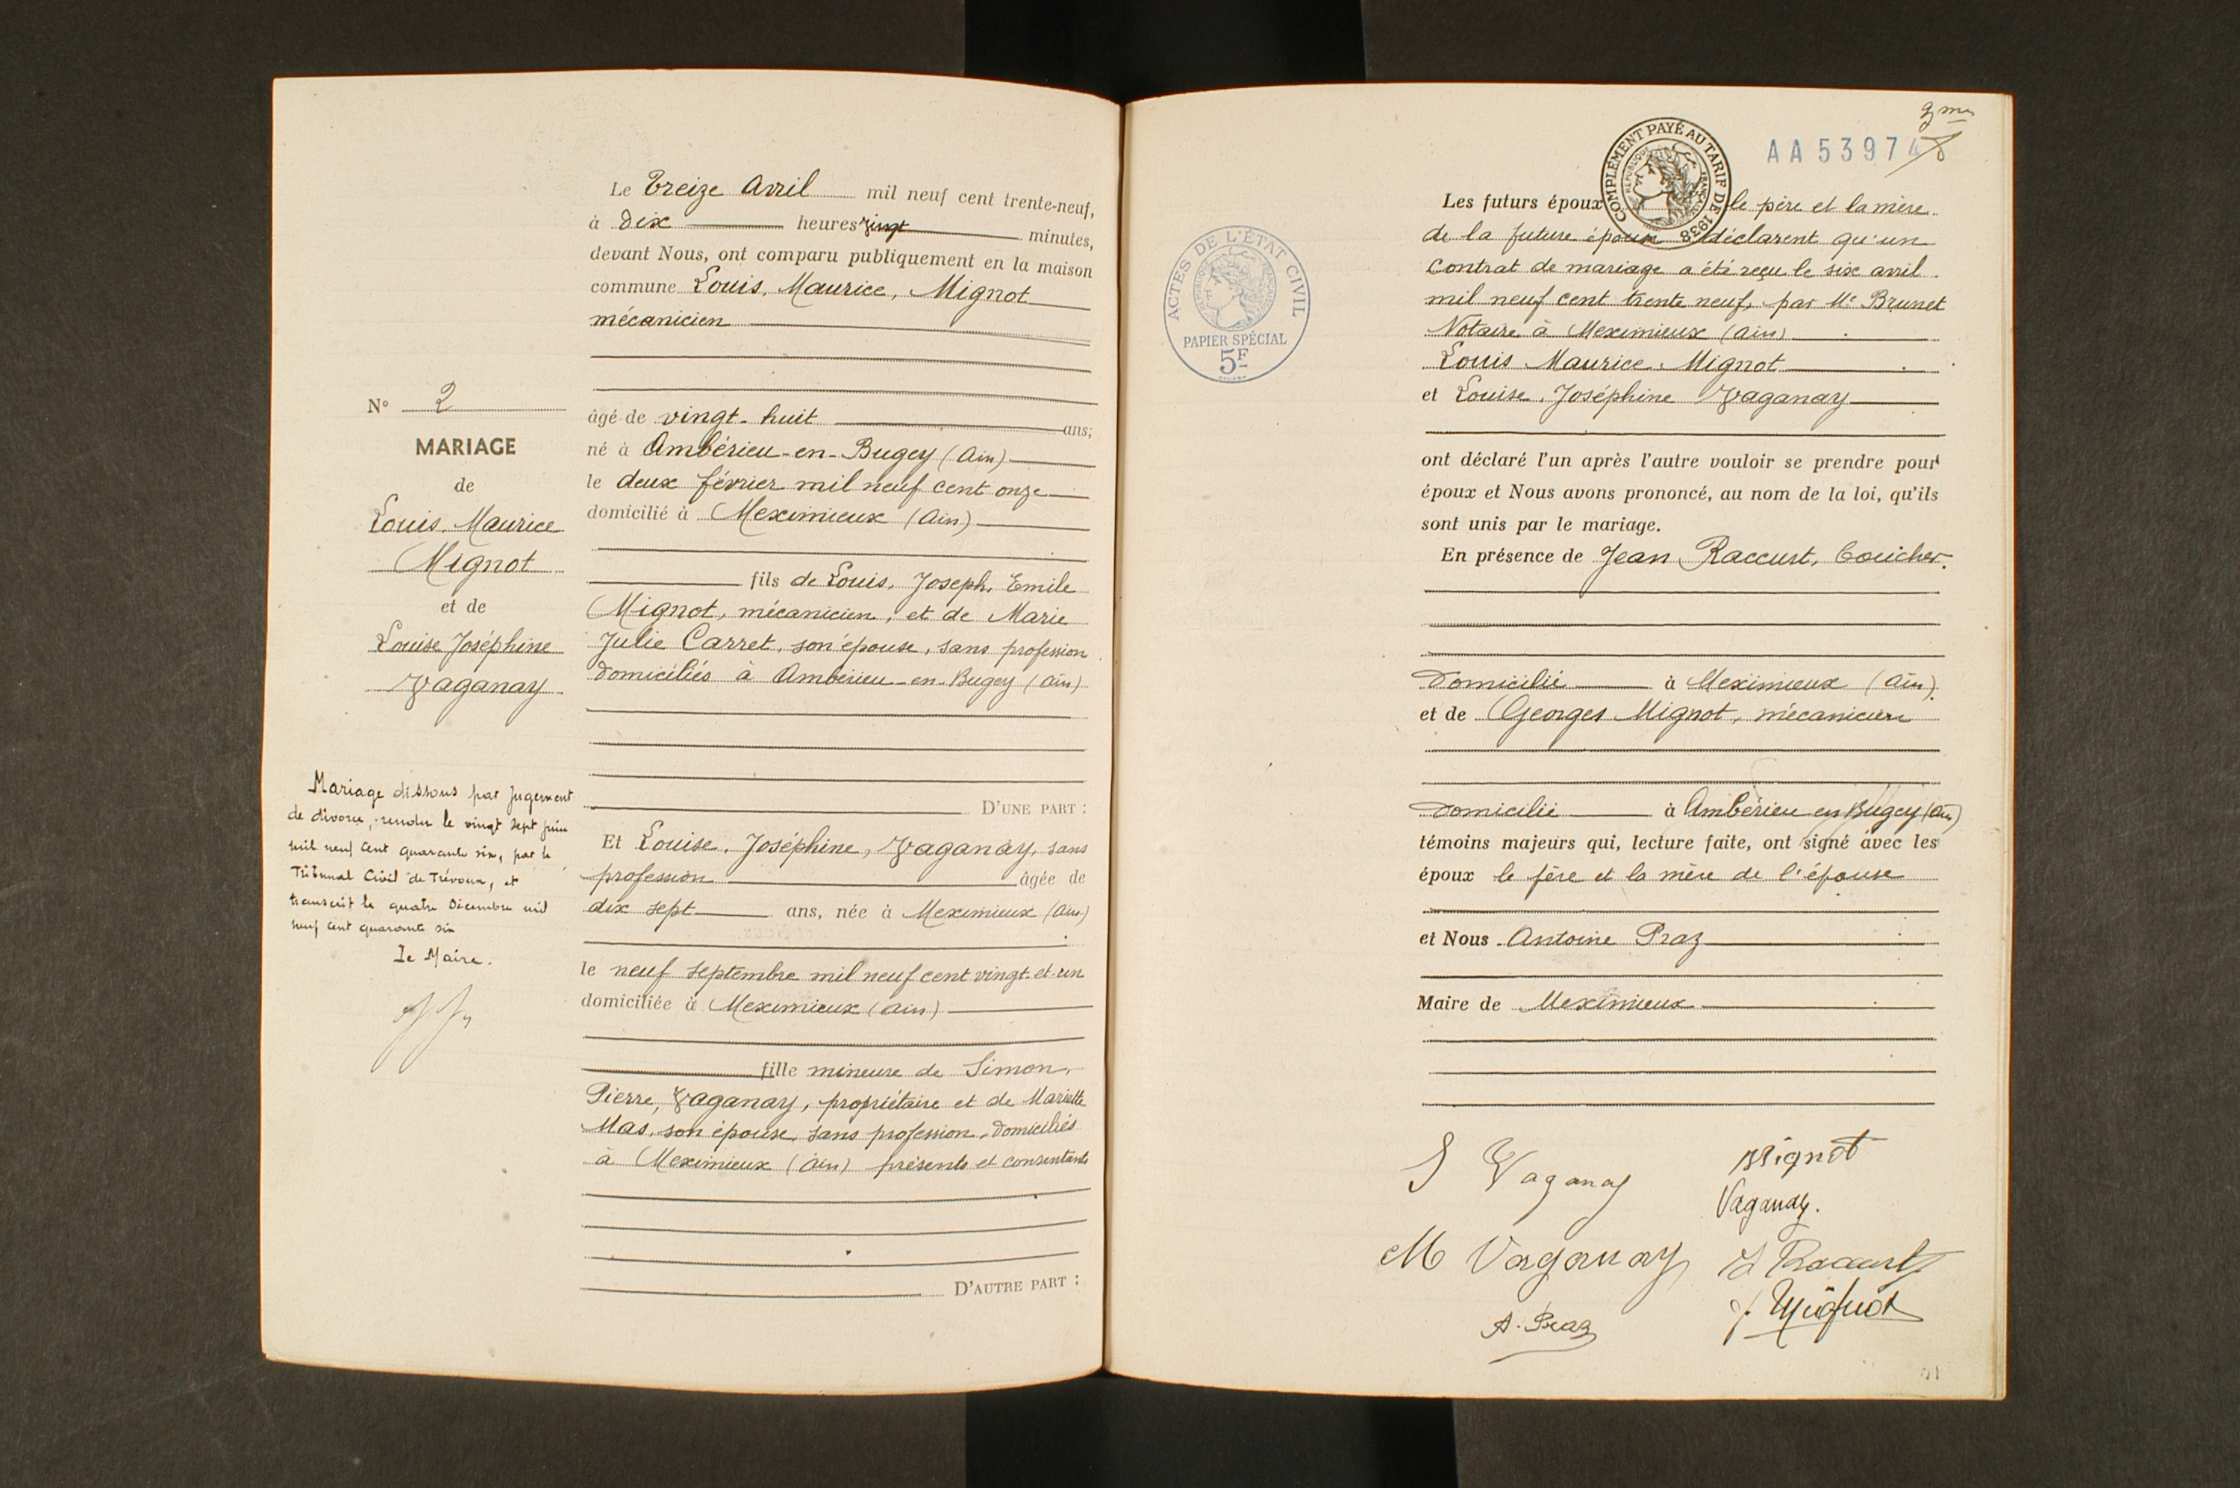 N° 2
MARIAGE
de
Louis, Maurice
Mignot
et de
Louise Joséphine
Vaganay
Mariage dissous par jugement
de divorce, rendu le vingt sept juin
mil neuf cent quarante six, par le
Tribunal Civil de Trévoux, et
transcrit le quatre Décembre mil
neuf cent quarante six
Le Maire.
Le Treize Avril mil neuf cent trente-neuf,
à dix heures vingt minutes,
devant Nous, ont comparu publiquement en la maison
commune Louis, Maurice, Mignot
mécanicien
âgé de vingt-huit ans;
né à Ambérieu-en-Bugey (Ain)
le deux février mil neuf cent onze
domicilié à Meximieux (Ain)
fils de Louis, Joseph, Emile
Mignot, mécanicien, et de Marie
Julie Carret, son épouse, sans profession
domiciliés à Ambérieu-en-Bugey (Ain)
D'UNE PART :
Et Louise, Joséphine, Vaganay, sans
profession âgée de
dix sept ans, née à Meximieux (Ain)
le neuf septembre mil neuf cent vingt-et-un
domiciliée à Meximieux (Ain)
fille mineure de Simon,
Pierre, Vaganay, propriétaire et de Mariette
Mas, son épouse, sans profession, domiciliés
à Meximieux (Ain) présents et consentants
D'AUTRE PART :
ACTES DE L'ÉTAT CIVIL
RÉPUBLIQUE FRANÇAISE
PAPIER SPÉCIAL
5F
COMPLÉMENT PAYÉ AU TARIF DE 1938
RÉPUBLIQUE FRANÇAISE
AA53974
Les futurs époux le père et la mère
de la future épouse déclarent qu'un
contrat de mariage a été reçu le six avril
mil neuf cent trente neuf, par Me Brunet
Notaire à Meximieux (Ain)
Louis Maurice Mignot
et Louise, Joséphine Vaganay
ont déclaré l'un après l'autre vouloir se prendre pour
époux et Nous avons prononcé, au nom de la loi, qu'ils
sont unis par le mariage.
En présence de Jean Raccurt,
domicilié à Meximieux (Ain).
et de Georges Mignot, mécanicien
domicilié à Ambérieu en Bugey (Ain)
témoins majeurs qui, lecture faite, ont signé avec les
époux le père et la mère de l'épouse
et Nous Antoine Praz
Maire de Meximieux
S Vaganay
Mignot
Vaganay.
M Vaganay
J Raccurt
A. Praz
Mignot